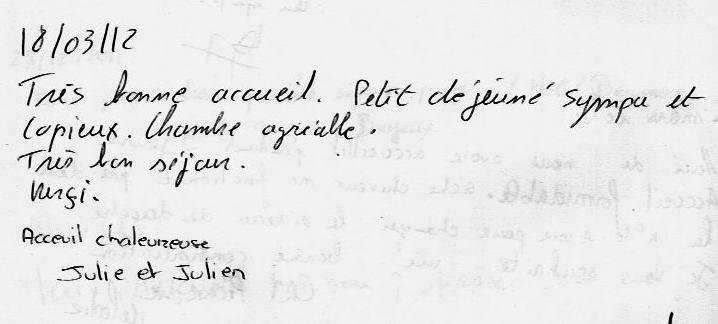 18/03/12
Très bonne accueil. Petit déjeuné sympa et
copieux. Chambre agréable.
Très bon séjour.
Mersi.
Acceuil chaleureuse
Julie et Julien